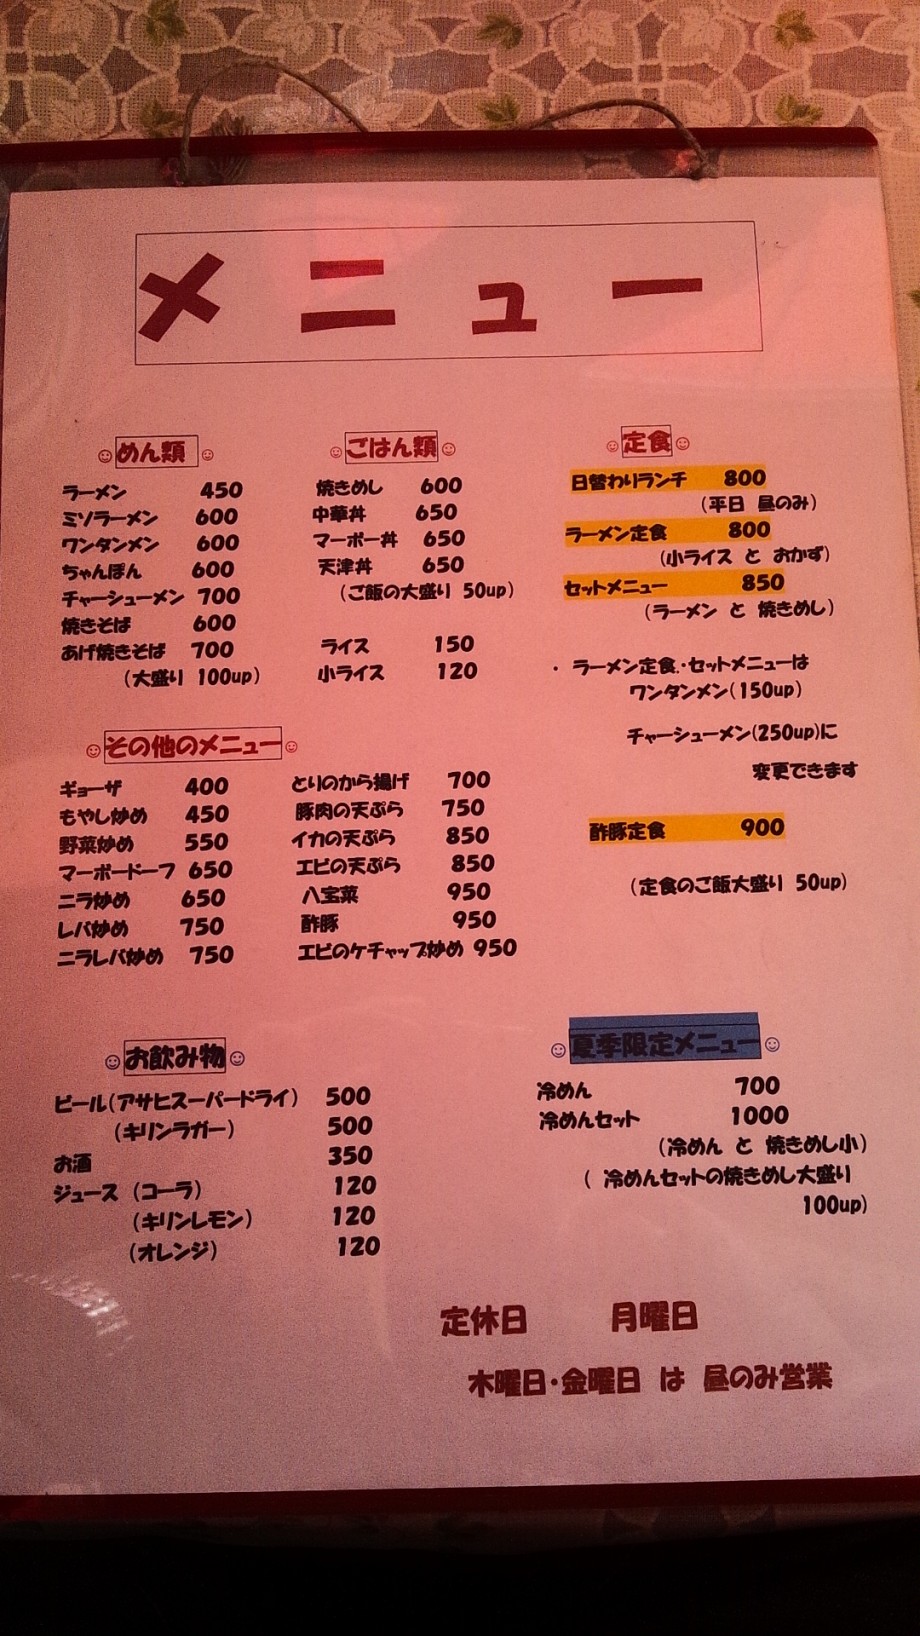 メニュー
めん類
ラーメン 450
ミソラーメン 600
ワンタンメン 600
ちゃんぽん 600
チャーシューメン 700
焼きそば 600
あげ焼きそば 700
(大盛り 100up)
ごはん類
焼きめし 600
中華丼 650
マーボー丼 650
天津丼 650
(ご飯の大盛り 50up)
ライス 150
小ライス 120
定食
日替わりランチ 800
(平日 昼のみ)
ラーメン定食 800
(小ライス と おかず)
セットメニュー 850
(ラーメン と 焼きめし)
・ ラーメン定食・セットメニューは
ワンタンメン(150up)
チャーシューメン(250up)に
変更できます
酢豚定食 900
(定食のご飯大盛り 50up)
その他のメニュー
ギョーザ 400
もやし炒め 450
野菜炒め 550
マーボードーフ 650
ニラ炒め 650
レバ炒め 750
ニラレバ炒め 750
とりのから揚げ 700
豚肉の天ぷら 750
イカの天ぷら 850
エビの天ぷら 850
八宝菜 950
酢豚 950
エビのケチャップ炒め 950
お飲み物
ビール(アサヒスーパードライ) 500
(キリンラガー) 500
お酒 350
ジュース (コーラ) 120
(キリンレモン) 120
(オレンジ) 120
夏季限定メニュー
冷めん 700
冷めんセット 1000
(冷めん と 焼きめし小)
( 冷めんセットの焼きめし大盛り
100up)
定休日 月曜日
木曜日・金曜日 は 昼のみ営業